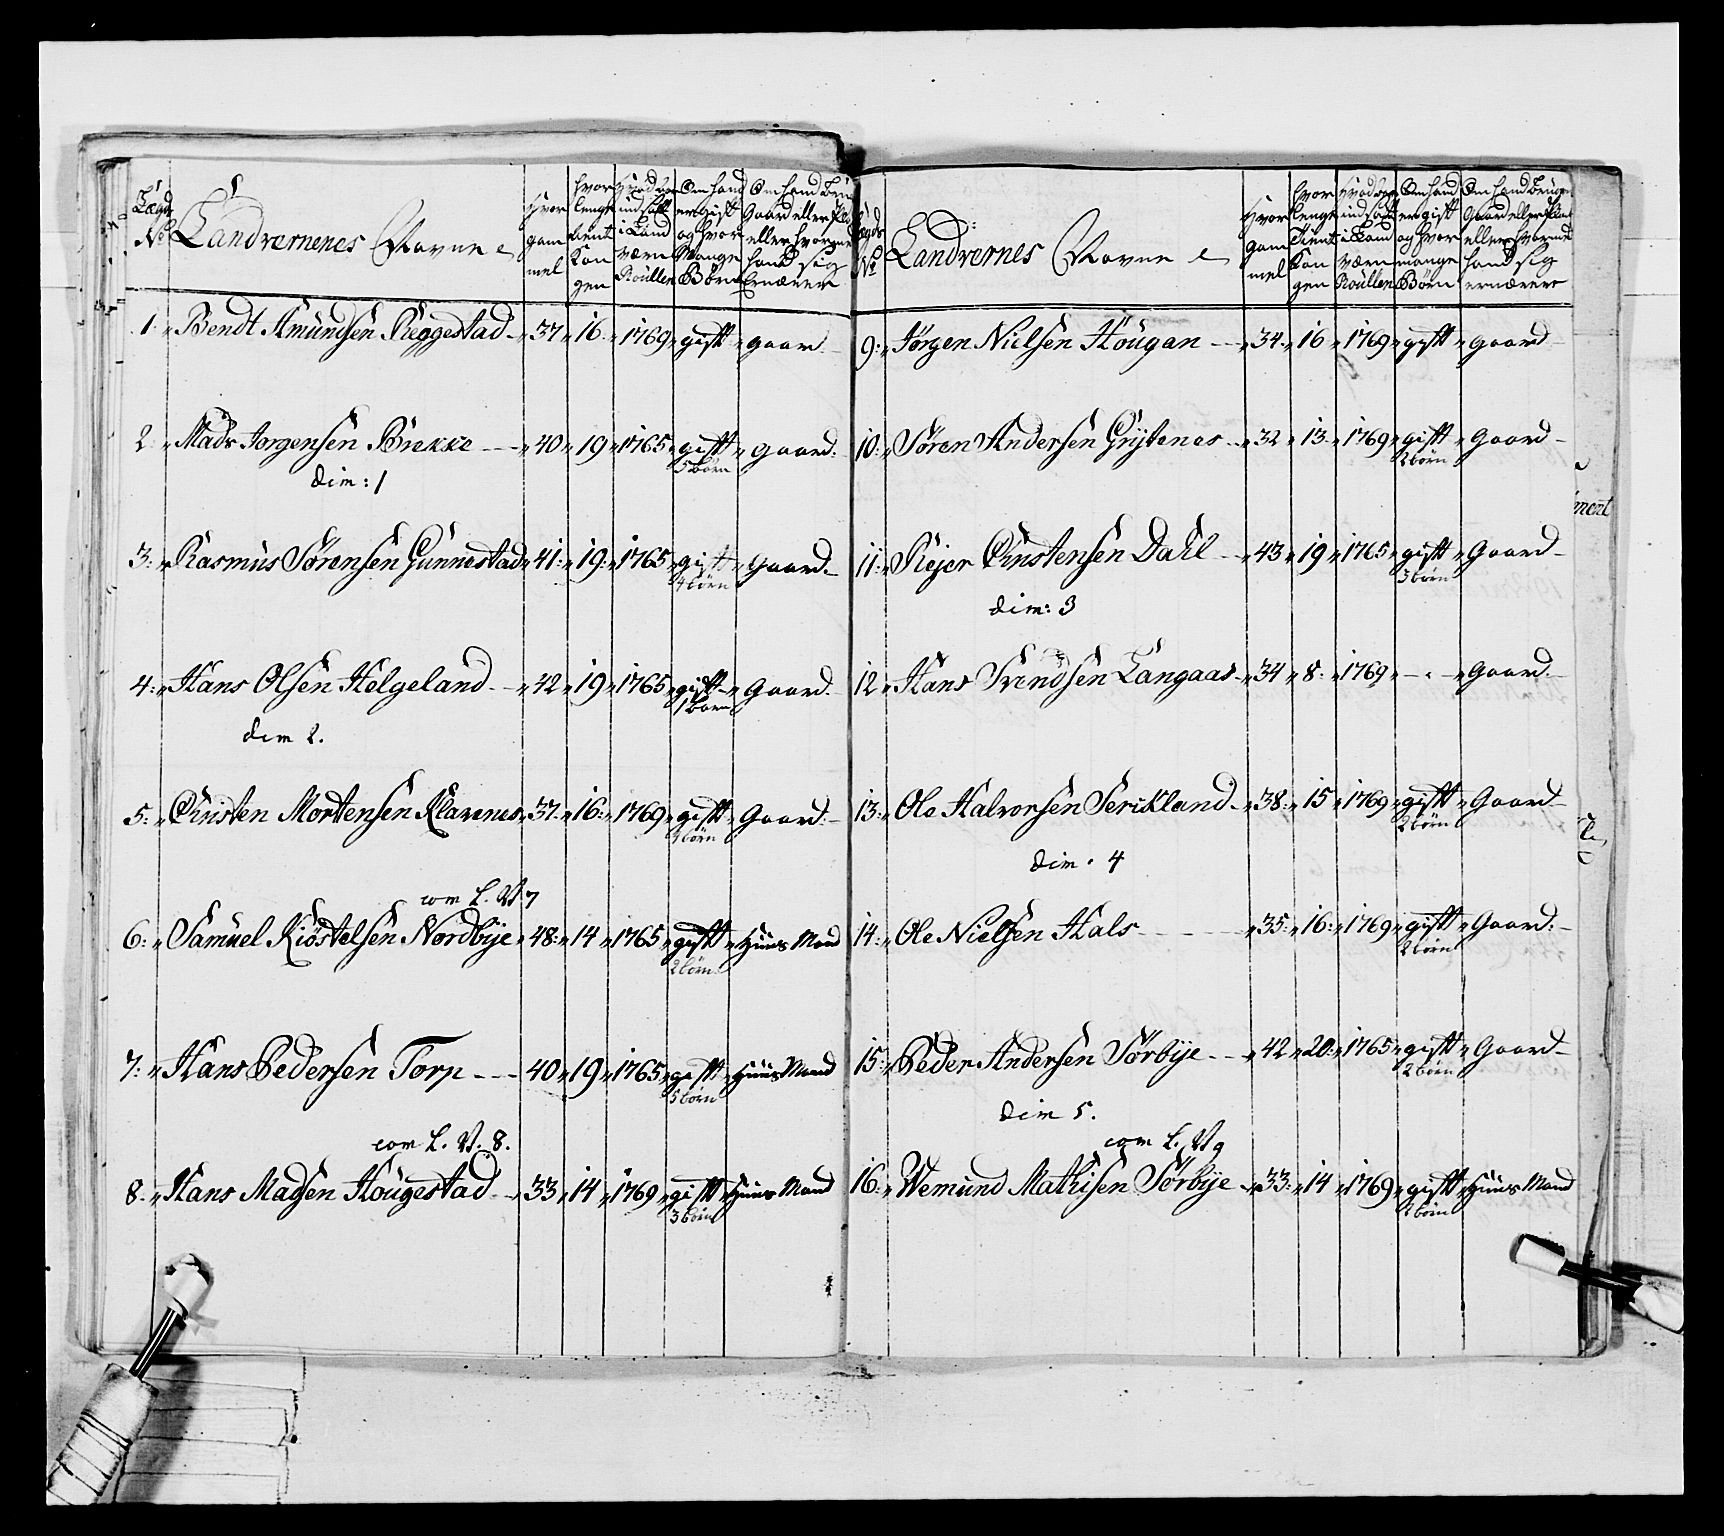 Lægd No
Landvernenes Navne
Hvor gammel
Hvor lenge tient Kongen
Hvad Aar indsatt i Landværn Roullen
Om hand er gift og hvor Mange Børn
Om hand bruger Gaard eller Plads eller hvormed hand sig Ernærer
1. Bendt Amundsen Reggestad 37 16 1769 gift gaard
2 Mads Jorgensen Brekke 40 19 1765 gift gaard
5 børn
dim: 1
3. Rasmus Sørensen Gunnestad 41 19 1765 gift gaard
4 børn
4. Hans Olsen Helgeland 42 19 1765 gift Gaard
1 barn
dim 2.
5. Christen Mortensen Klavenes 37 16 1769 gift Gaard
børn
com L. V. 7
6. Samuel Kiöstelsen Nordbÿe 48 14 1765 gift Huus Mand
2 børn
7. Hans Pedersen Torp 40 19 1765 gift Huus Mand
5 børn
com L. V. 8.
8. Hans Madsen Hougestad 33 14 1769 gift Huus Mand
3 børn
Lægd No
Landvernes Navne
Hvor gammel
Hvor lenge Tient Kongen
Hvad Aar indsadt i Landværn Roullen
Om hand er gift og hvor mange Børn
Om hand bruger Gaard eller Plads eller hvormed hand sig ernærer
9. Jørgen Nielsen Hougan 34 16 1769 gift gaard
10. Søren Andersen Grÿtenes 32 13 1769 gift Gaard
2 børn
11. Rejer Christensen Dahl 43 19 1765 gift Gaard
3 børn
dim: 3
12 Hans Svendsen Langaas 34 8 1769 - Gaard
13. Ole Halvorsen Serikland 38 15 1769 gift Gaard
2 børn
dim. 4
14. Ole Nielsen Hals 35 16 1769 gift Gaard
2 børn
15. Peder Andersen Sørbÿe 42 20 1765 gift Gaard
2 børn
dim 5.
com L. V. 9
16. Wemund Mathisen Sørbÿe 33 14 1769 gift Huus Mand
2 børn